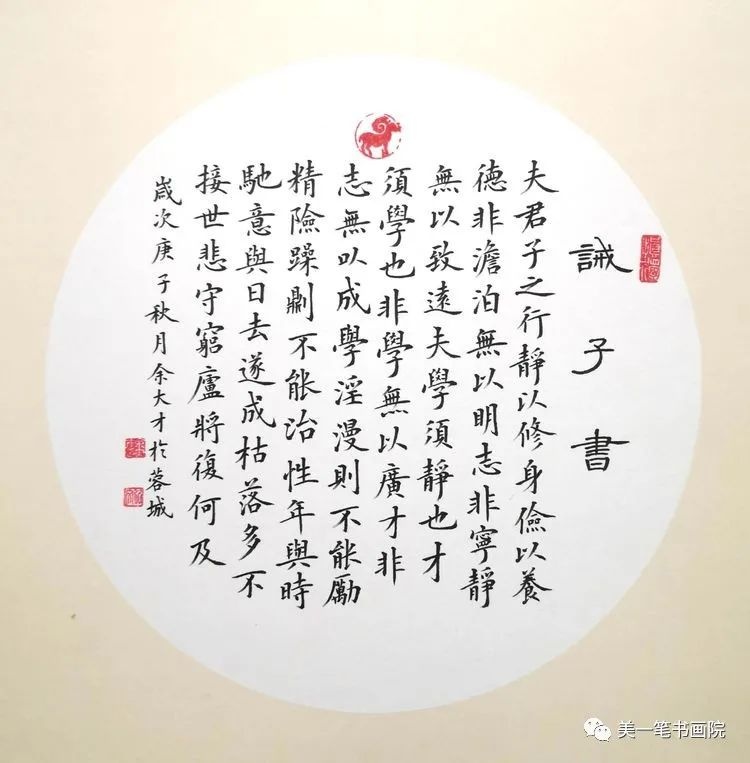 誡子書
夫君子之行靜以修身儉以養
德非澹泊無以明志非寧靜
無以致遠夫學須靜也才
須學也非學無以廣才非
志無以成學淫漫則不能勵
精險躁則不能治性年與時
馳意與日去遂成枯落多不
接世悲守窮廬將復何及
歲次庚子秋月余大才於蓉城
美一笔书画院